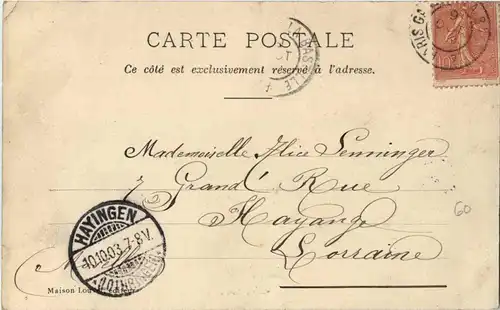 CARTE POSTALE
Ce côté est exclusivement réservé à l'adresse.
PARIS GA
LA BASTILLE
Mademoiselle Alice Senninger
7 Grand' Rue
Hayange
Lorraine
60
HAYINGEN
10.10.03.7-8V.
(LOTHRINGEN)
Maison Lou